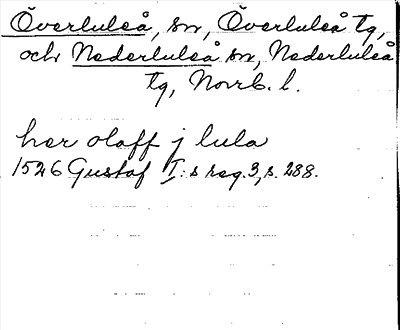 Överluleå, sn, Överluleå tg,
och Nederluleå sn, Nederluleå
tg, Norrb. l.
her olaff j lula
1526 Gustaf I:s reg. 3, s. 288.